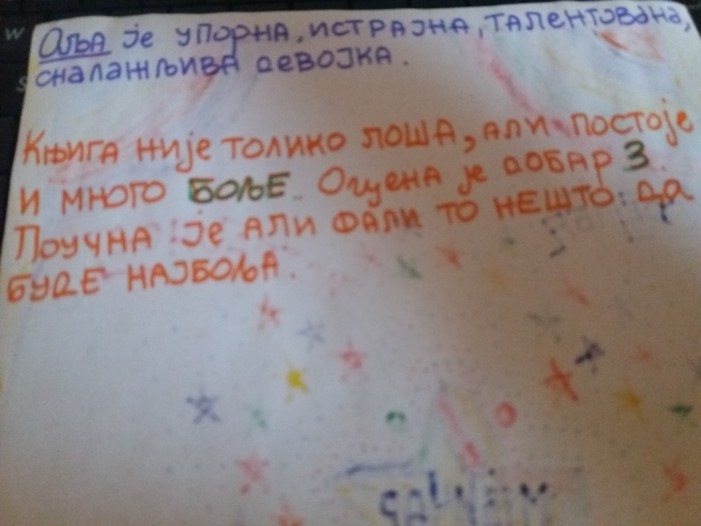 Аља је упорна, истрајна, талентована,
сналажљива девојка.
Књига није толико лоша, али постоје
и много боље. Оцјена је добар 3.
Поучна је али фали то нешто да
буде најбоља.